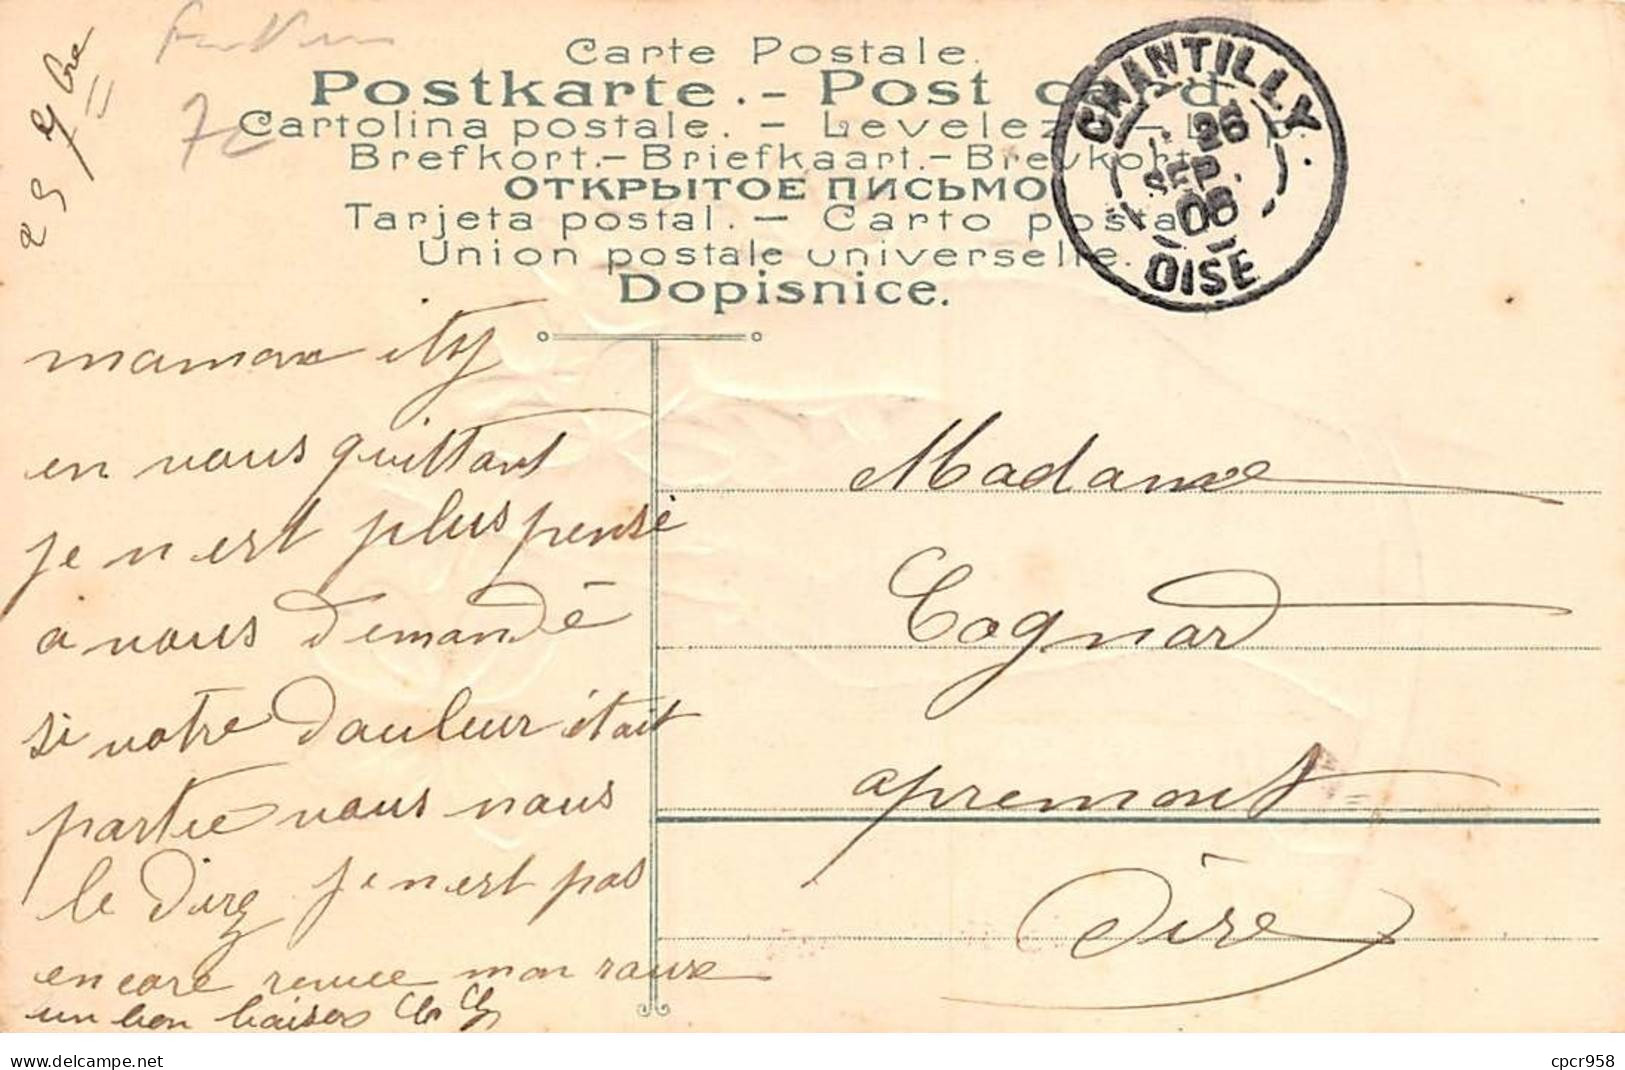 25 7bre
7c
Carte Postale.
Postkarte.- Post card.
Cartolina postale. - Levelez
Brefkort.- Briefkaart.- Brevkort
ОТКРЫТОЕ ПИСЬМО
Tarjeta postal. - Carto posta
Union postale universelle.
Dopisnice.
CHANTILLY
26
SEP.
06
OISE
maman
en vous quittant
je n est plus pensé
a vous demandé
si votre douleur était
partie vous nous
le direz je n est pas
encore revue mon
un bon baisers
Madame
Cognard
apremont
Oise
cpcr958